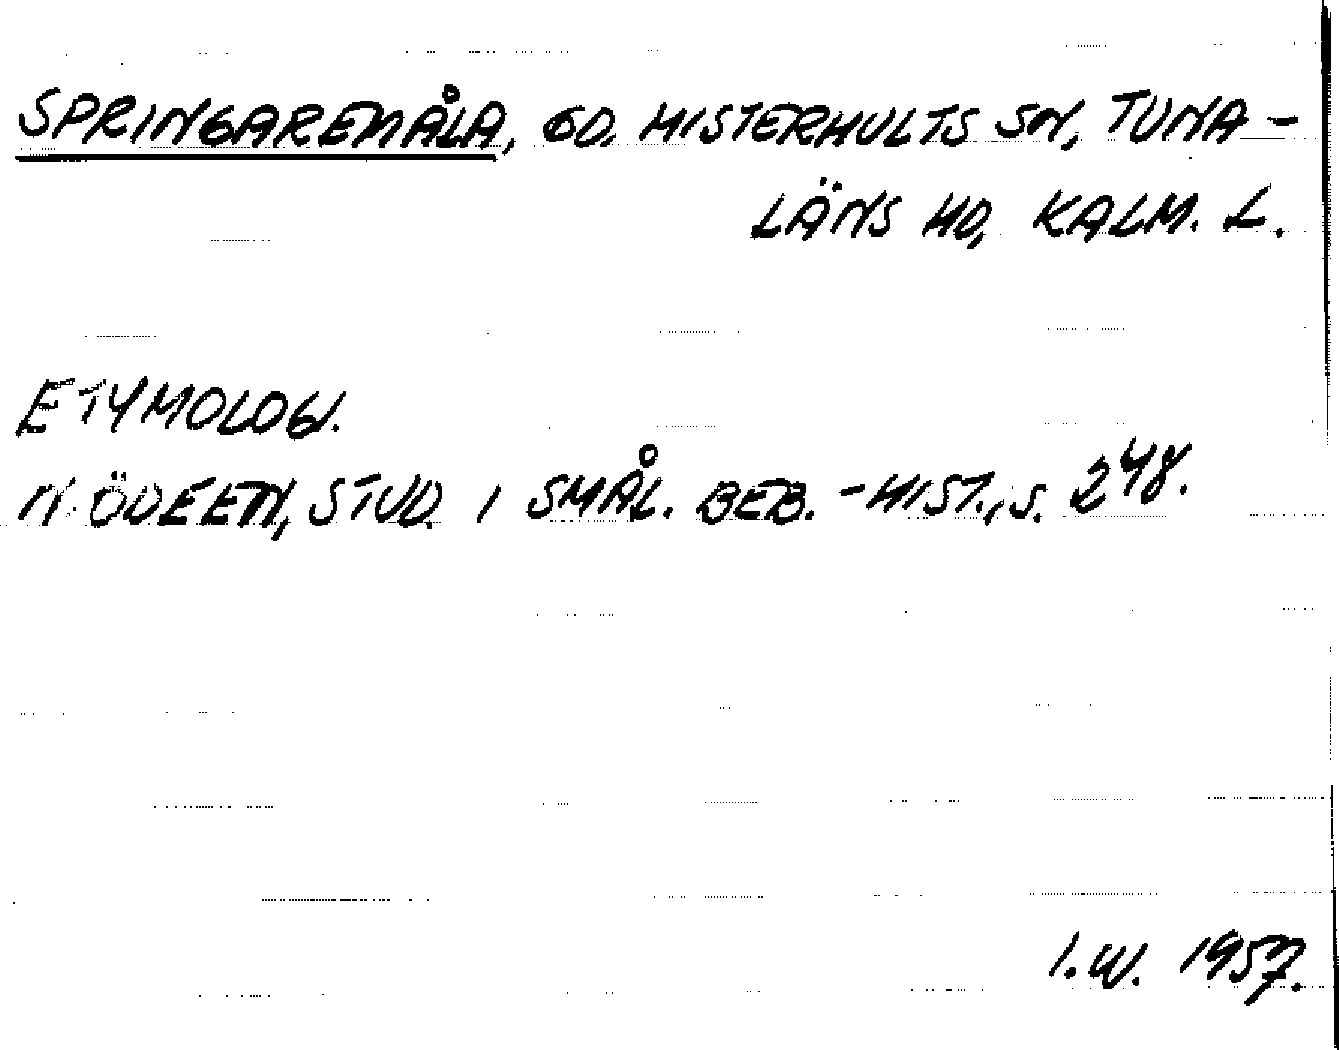 SPRINGAREMÅLA, GD, MISTERHULTS SN, TUNA-
LÄNS HD, KALM. L.
ETYMOLOGI.
N. ÖDEEN, STUD. I SMÅL. BEB.-HIST., S. 248.
I.W. 1957.